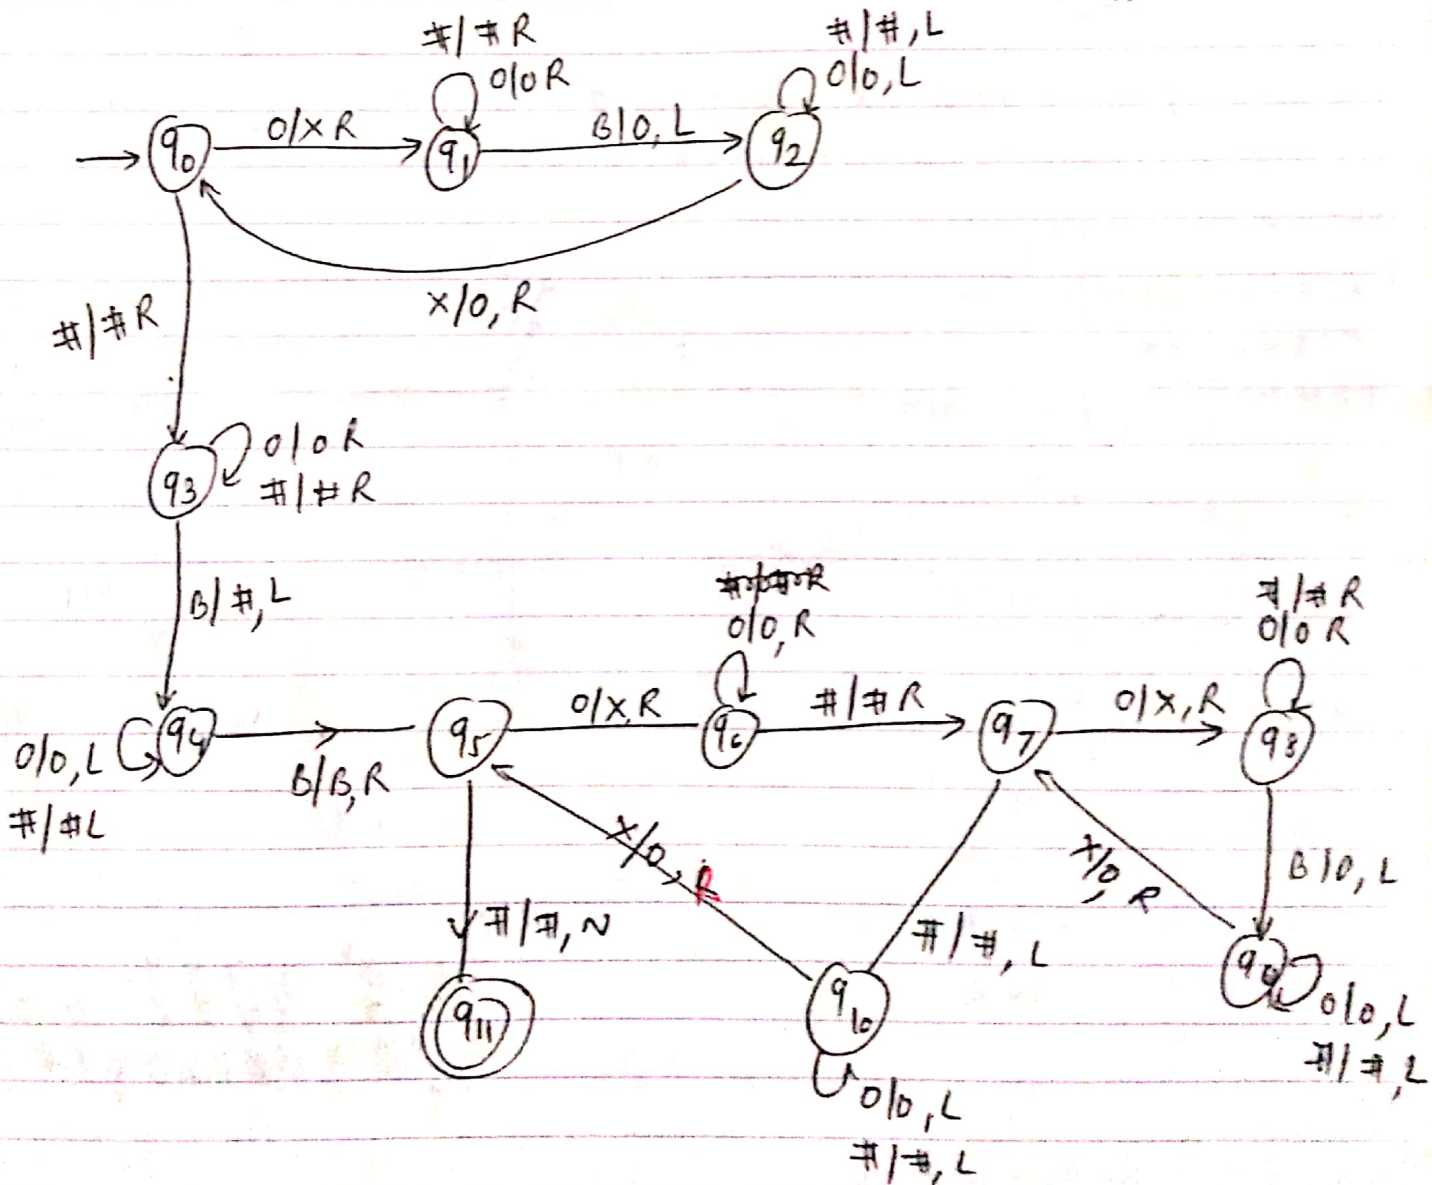 #/#R #/#,L
0/0R 0/0,L
q0 0/XR q1 B/0,L q2
X/0,R
#/#R
q3 0/0R
#/#R
B/#,L
0/0,R #/#R
0/0R
q4 B/B,R q5 0/X,R q6 #/#R q7 0/X,R q8
0/0,L
#/#L
X/0,R X/0,R B/0,L
#/#,N #/#,L
q11 q10 q9 0/0,L
#/#,L
0/0,L
#/#,L